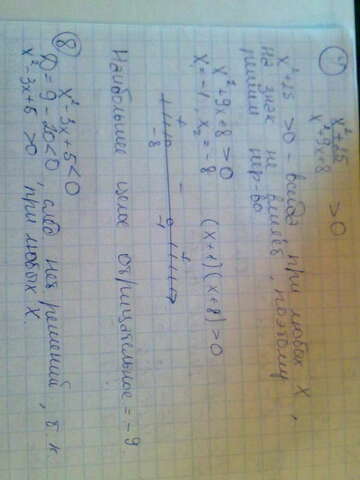 ⑦ x²+25 / x²+9x+8 > 0
x²+25 > 0 – всегда при любых x,
на знак не влияет, поэтому
решаем нер-во
x²+9x+8 > 0
x₁=-1, x₂=-8 (x+1)(x+8)>0
+ - +
-8 -1
Наибольшее целое отрицательное = -9
⑧ x²-3x+5<0
D=9-20<0, след. нет решений, т.к.
x²-3x+5 >0 при любых x.